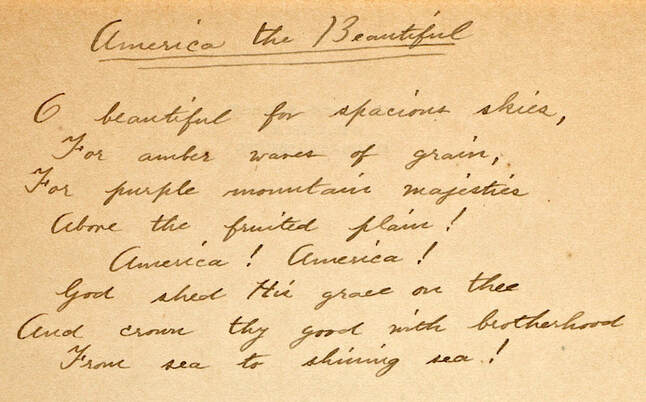 America the Beautiful
O beautiful for spacious skies,
For amber waves of grain,
For purple mountain majesties
Above the fruited plain!
America! America!
God shed His grace on thee
And crown thy good with brotherhood
From sea to shining sea!